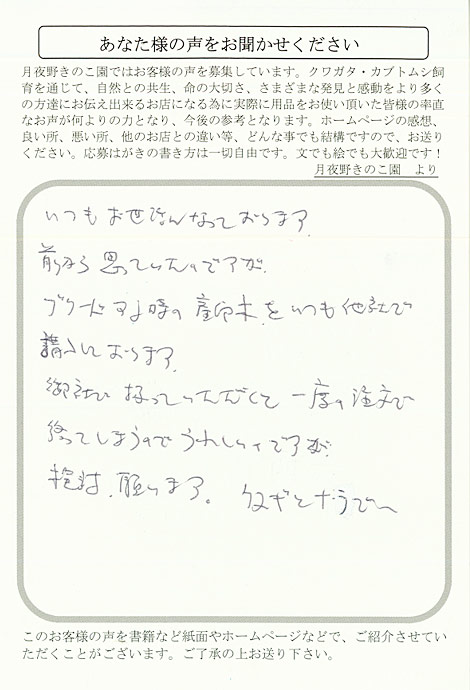 あなた様の声をお聞かせください
月夜野きのこ園ではお客様の声を募集しています。クワガタ・カブトムシ飼
育を通じて、自然との共生、命の大切さ、さまざまな発見と感動をより多く
の方達にお伝え出来るお店になる為に実際に用品をお使い頂いた皆様の率直
なお声が何よりの力となり、今後の参考となります。ホームページの感想、
良い所、悪い所、他のお店との違い等、どんな事でも結構ですので、お送り
ください。応募はがきの書き方は一切自由です。文でも絵でも大歓迎です！
月夜野きのこ園　より
いつもお世話になっております
前から思っていたのですが
ブリードする時の産卵木をいつも他社で
購入しております
御社で扱っていただくと一度の注文で
終ってしまうのでうれしいですが
検討願います。クヌギとナラで〜
このお客様の声を書籍など紙面やホームページなどで、ご紹介させてい
ただくことがございます。ご了承の上お送り下さい。